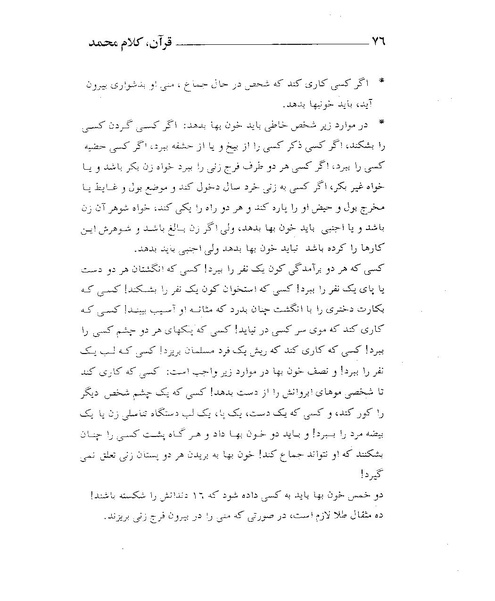 ۷۶ قرآن، کلام محمد
* اگر کسی کاری کند که شخص در حال جماع، منی او بدشواری بیرون
آید، باید خونبها بدهد.
* در موارد زیر شخص خاطی باید خون بها بدهد: اگر کسی گردن کسی
را بشکند، اگر کسی ذکر کسی را از بیخ و یا از حشفه ببرد، اگر کسی خصیه
کسی را ببرد، اگر کسی هر دو طرف فرج زنی را ببرد خواه زن بکر باشد و یا
خواه غیر بکر، اگر کسی به زنی خرد سال دخول کند و موضع بول و غایط یا
مخرج بول و حیض او را پاره کند و هر دو راه را یکی کند، خواه شوهر آن زن
باشد و یا اجنبی باید خون بها بدهد، ولی اگر زن بالغ باشد و شوهرش این
کارها را کرده باشد نباید خون بها بدهد ولی اجنبی باید بدهد.
کسی که هر دو برآمدگی کون یک نفر را ببرد! کسی که انگشتان هر دو دست
یا پای یک نفر را ببرد! کسی که استخوان کون یک نفر را بشکند! کسی که
بکارت دختری را با انگشت چنان بدرد که مثانه او آسیب ببیند! کسی که
کاری کند که موی سر کسی در نیاید! کسی که پلکهای هر دو چشم کسی را
ببرد! کسی که کاری کند که ریش یک فرد مسلمان بریزد! کسی که لب یک
نفر را ببرد! و نصف خون بها در موارد زیر واجب است: کسی که کاری کند
تا شخصی موهای ابروانش را از دست بدهد! کسی که یک چشم شخص دیگر
را کور کند، و کسی که یک دست، یک پا، یک لب دستگاه تناسلی زن یا یک
بیضه مرد را ببرد! و باید دو خون بها داد و هر گاه پشت کسی را چنان
بشکنند که او نتواند جماع کند! خون بها به بریدن هر دو پستان زنی تعلق نمی
گیرد!
دو خمس خون بها باید به کسی داده شود که ۱۶ دندانش را شکسته باشند!
ده مثقال طلا لازم است، در صورتی که منی را در بیرون فرج زنی بریزند.